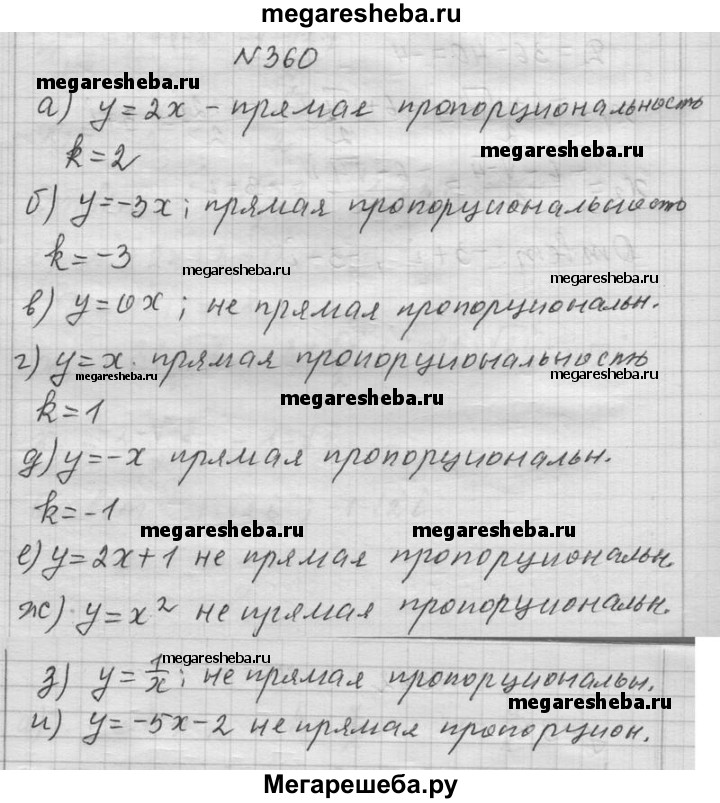 megaresheba.ru
N360
megaresheba.ru
а) y = 2x - прямая пропорциональность
k = 2
megaresheba.ru
б) y = -3x; прямая пропорциональность
k = -3
megaresheba.ru
megaresheba.ru
в) y = 0x; не прямая пропорциональн.
г) y = x. прямая пропорциональность
megaresheba.ru
megaresheba.ru
k = 1
megaresheba.ru
д) y = -x прямая пропорциональн.
k = -1
megaresheba.ru
megaresheba.ru
е) y = 2x + 1 не прямая пропорциональн.
ж) y = x² не прямая пропорциональн.
megaresheba.ru
з) y = 1/x; не прямая пропорциональн.
megaresheba.ru
и) y = -5x - 2 не прямая пропорцион.
Мегарешеба.ру